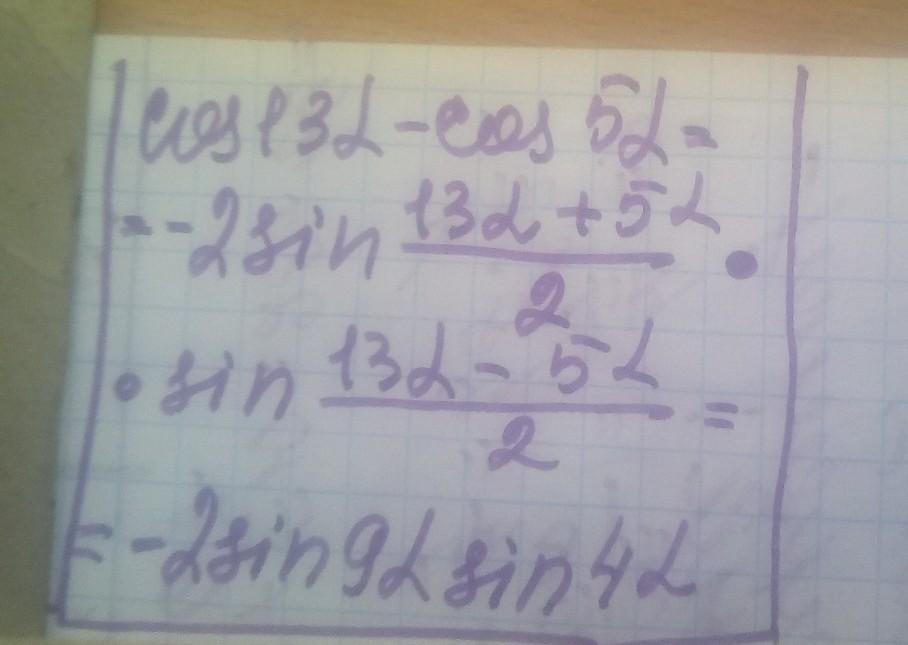 cos13α - cos 5α =
= -2sin (13α + 5α)/2 •
• sin (13α - 5α)/2 =
= -2sin9α sin4α